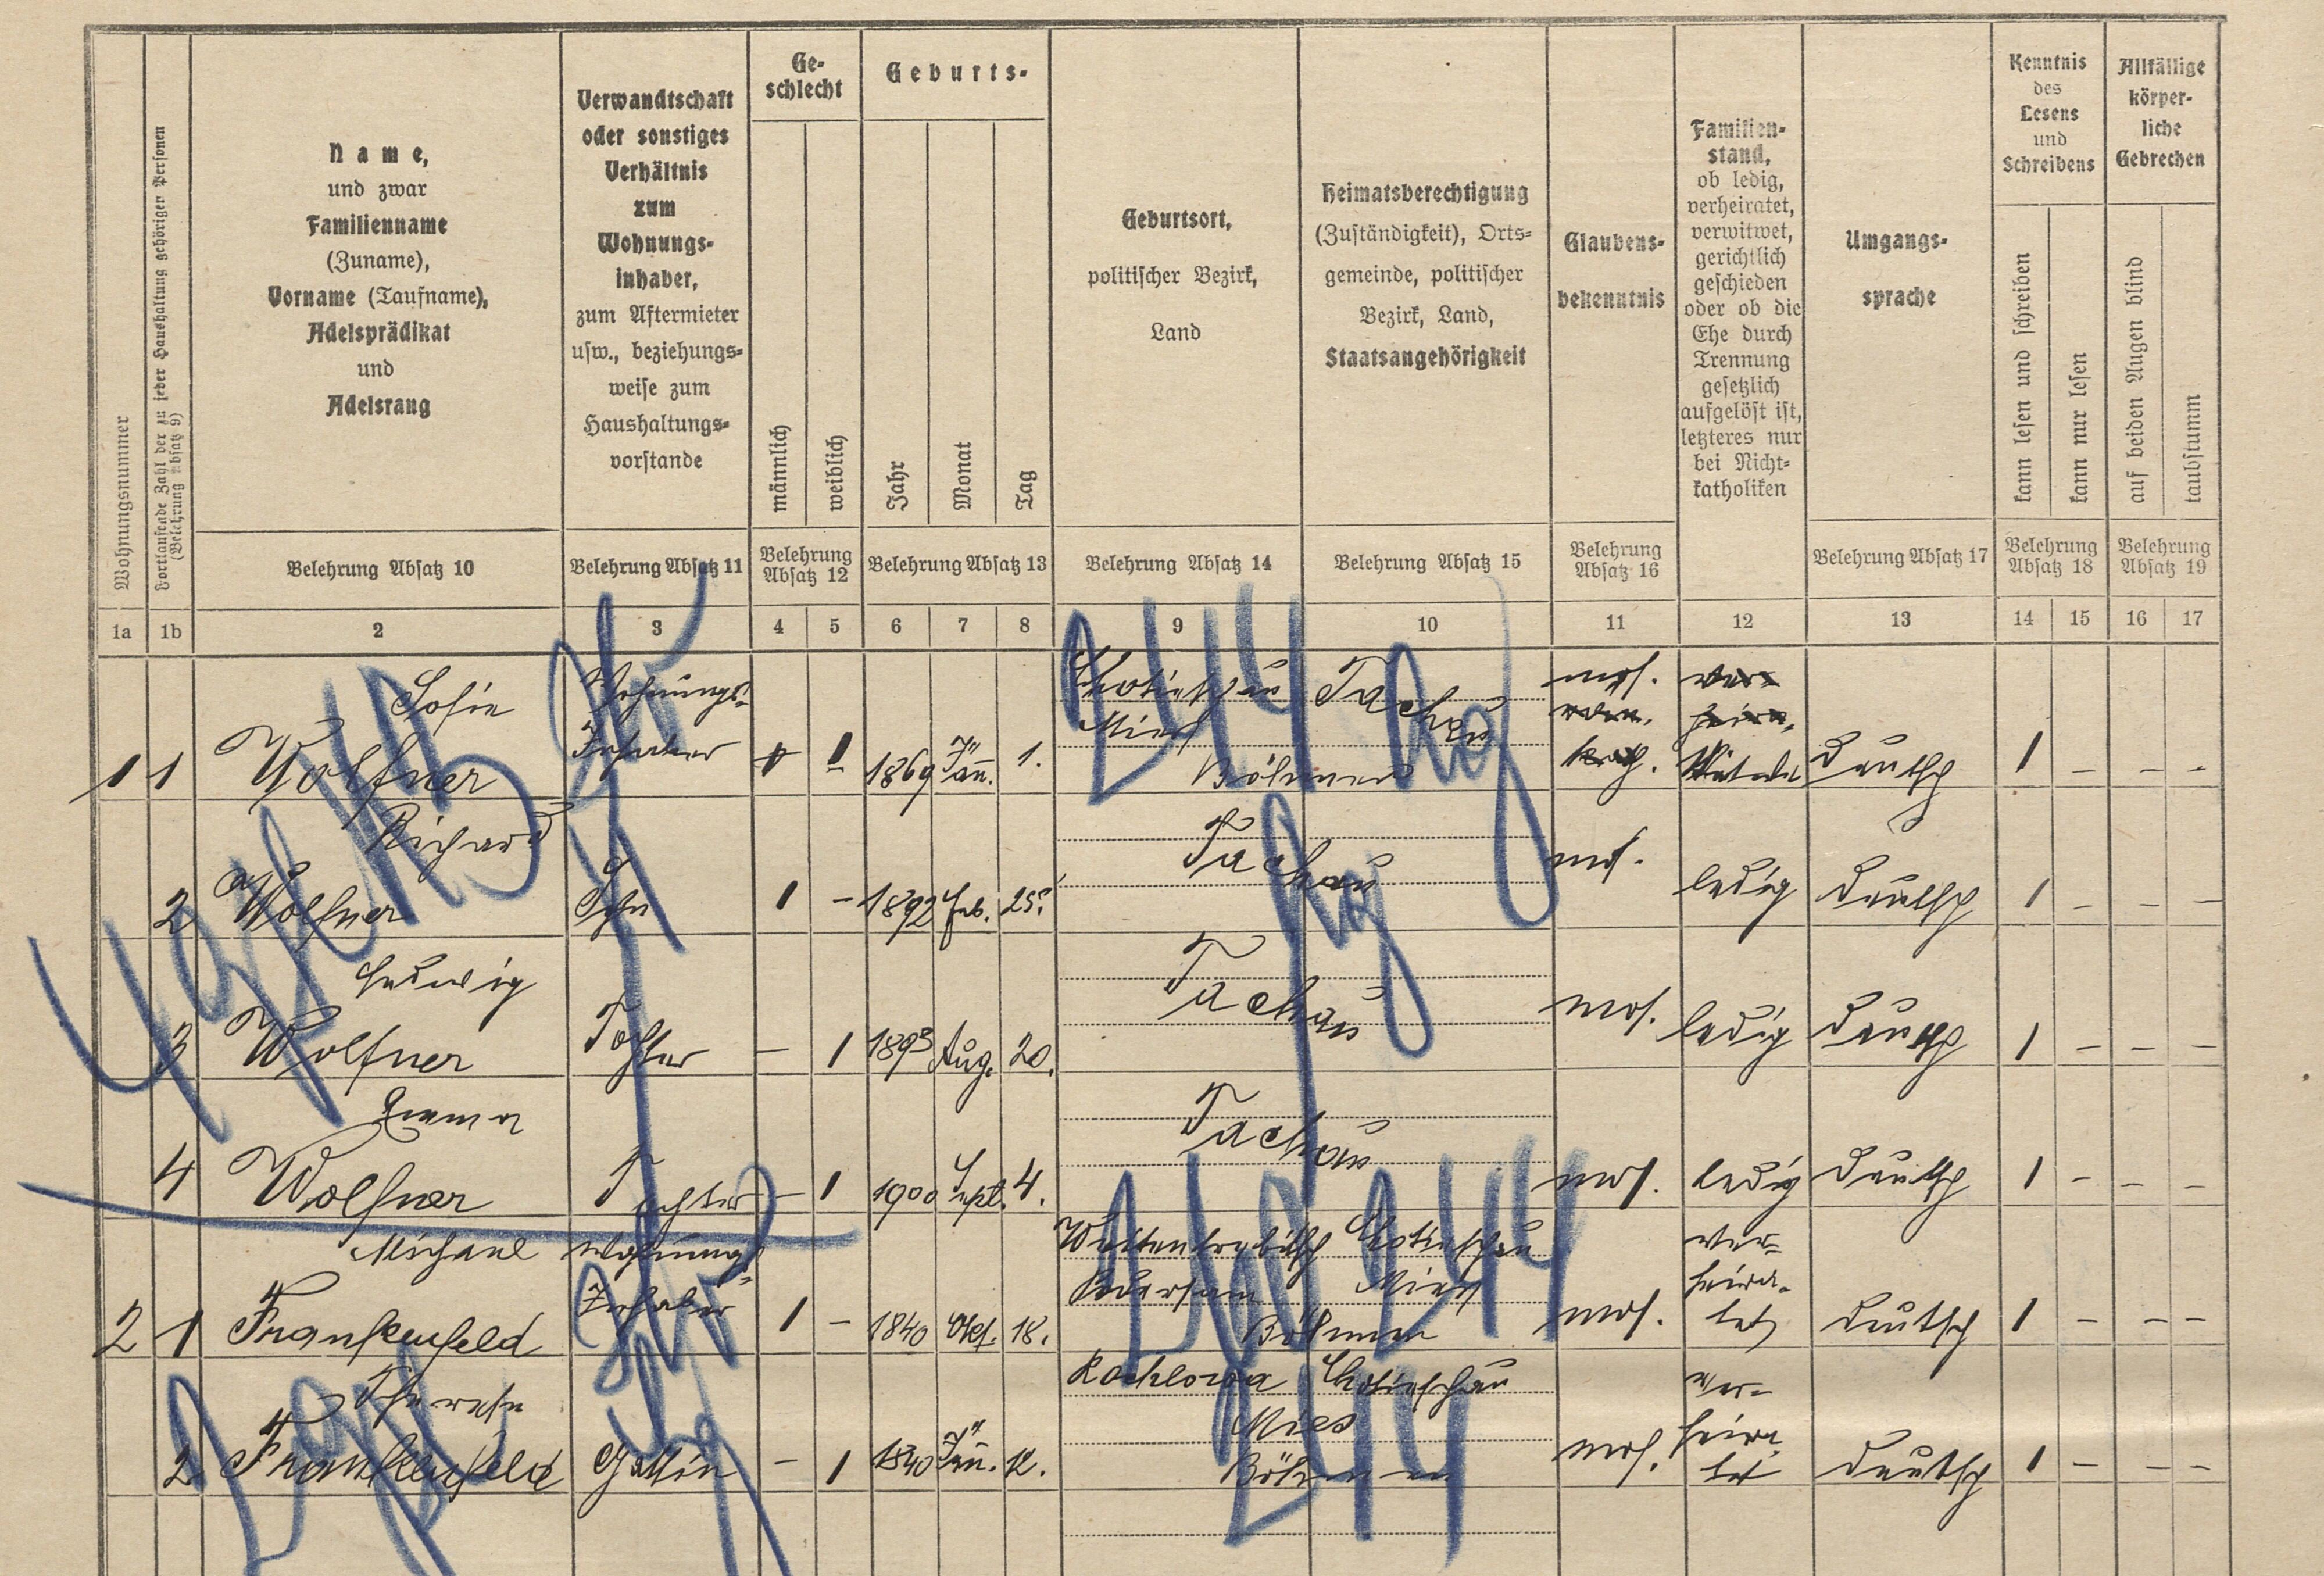 Wohnungsnummer
Fortlaufende Zahl der zu jeder Haushaltung gehörigen Personen
(Belehrung Absatz 9)
Name,
und zwar
Familienname
(Zuname),
Vorname (Taufname),
Adelsprädikat
und
Adelsrang
Verwandtschaft
oder sonstiges
Verhältnis
zum
Wohnungs-
inhaber,
zum Aftermieter
usw., beziehungs-
weise zum
Haushaltungs-
vorstande
Ge-
schlecht
männlich
weiblich
Geburts-
Jahr
Monat
Tag
Geburtsort,
politischer Bezirk,
Land
Heimatsberechtigung
(Zuständigkeit), Orts-
gemeinde, politischer
Bezirk, Land,
Staatsangehörigkeit
Glaubens-
bekenntnis
Familien-
stand,
ob ledig,
verheiratet,
verwitwet,
gerichtlich
geschieden
oder ob die
Ehe durch
Trennung
gesetzlich
aufgelöst ist,
letzteres nur
bei Nicht-
katholiken
Umgangs-
sprache
Kenntnis
des
Lesens
und
Schreibens
kann lesen und schreiben
kann nur lesen
Allfällige
körper-
liche
Gebrechen
auf beiden Augen blind
taubstumm
Belehrung Absatz 10
Belehrung Absatz 11
Belehrung
Absatz 12
Belehrung Absatz 13
Belehrung Absatz 14
Belehrung Absatz 15
Belehrung
Absatz 16
Belehrung Absatz 17
Belehrung
Absatz 18
Belehrung
Absatz 19
1a 1b 2 3 4 5 6 7 8 9 10 11 12 13 14 15 16 17
Sofie Wohnungs- Chotieschau Tachau mos.
Mies
1 1 Wolfner Inhaber 1 1869 Jän. 1. Böhmen deutsch 1 - - -
Richard Tachau mos.
2 Wolfner Sohn 1 - 1892 Feb. 25. ledig deutsch 1 - - -
Hedwig Tachau
3 Wolfner Tochter - 1 1893 Aug. 20. mos. ledig deutsch 1 - - -
Emma Tachau
4 Wolfner Tochter - 1 1900 Sept. 4. mos. ledig deutsch 1 - - -
Michael Wohnungs- Chotieschau ver-
Mies heira-
2 1 Frankenfeld Inhaber 1 - 1840 Okt. 18. Böhmen mos. tet deutsch 1 - - -
Theresie Rochlowa Chotieschau ver-
Mies heira-
2 Frankenfeld Gattin - 1 1840 Jän. 12. Böhmen mos. tet deutsch 1 - - -